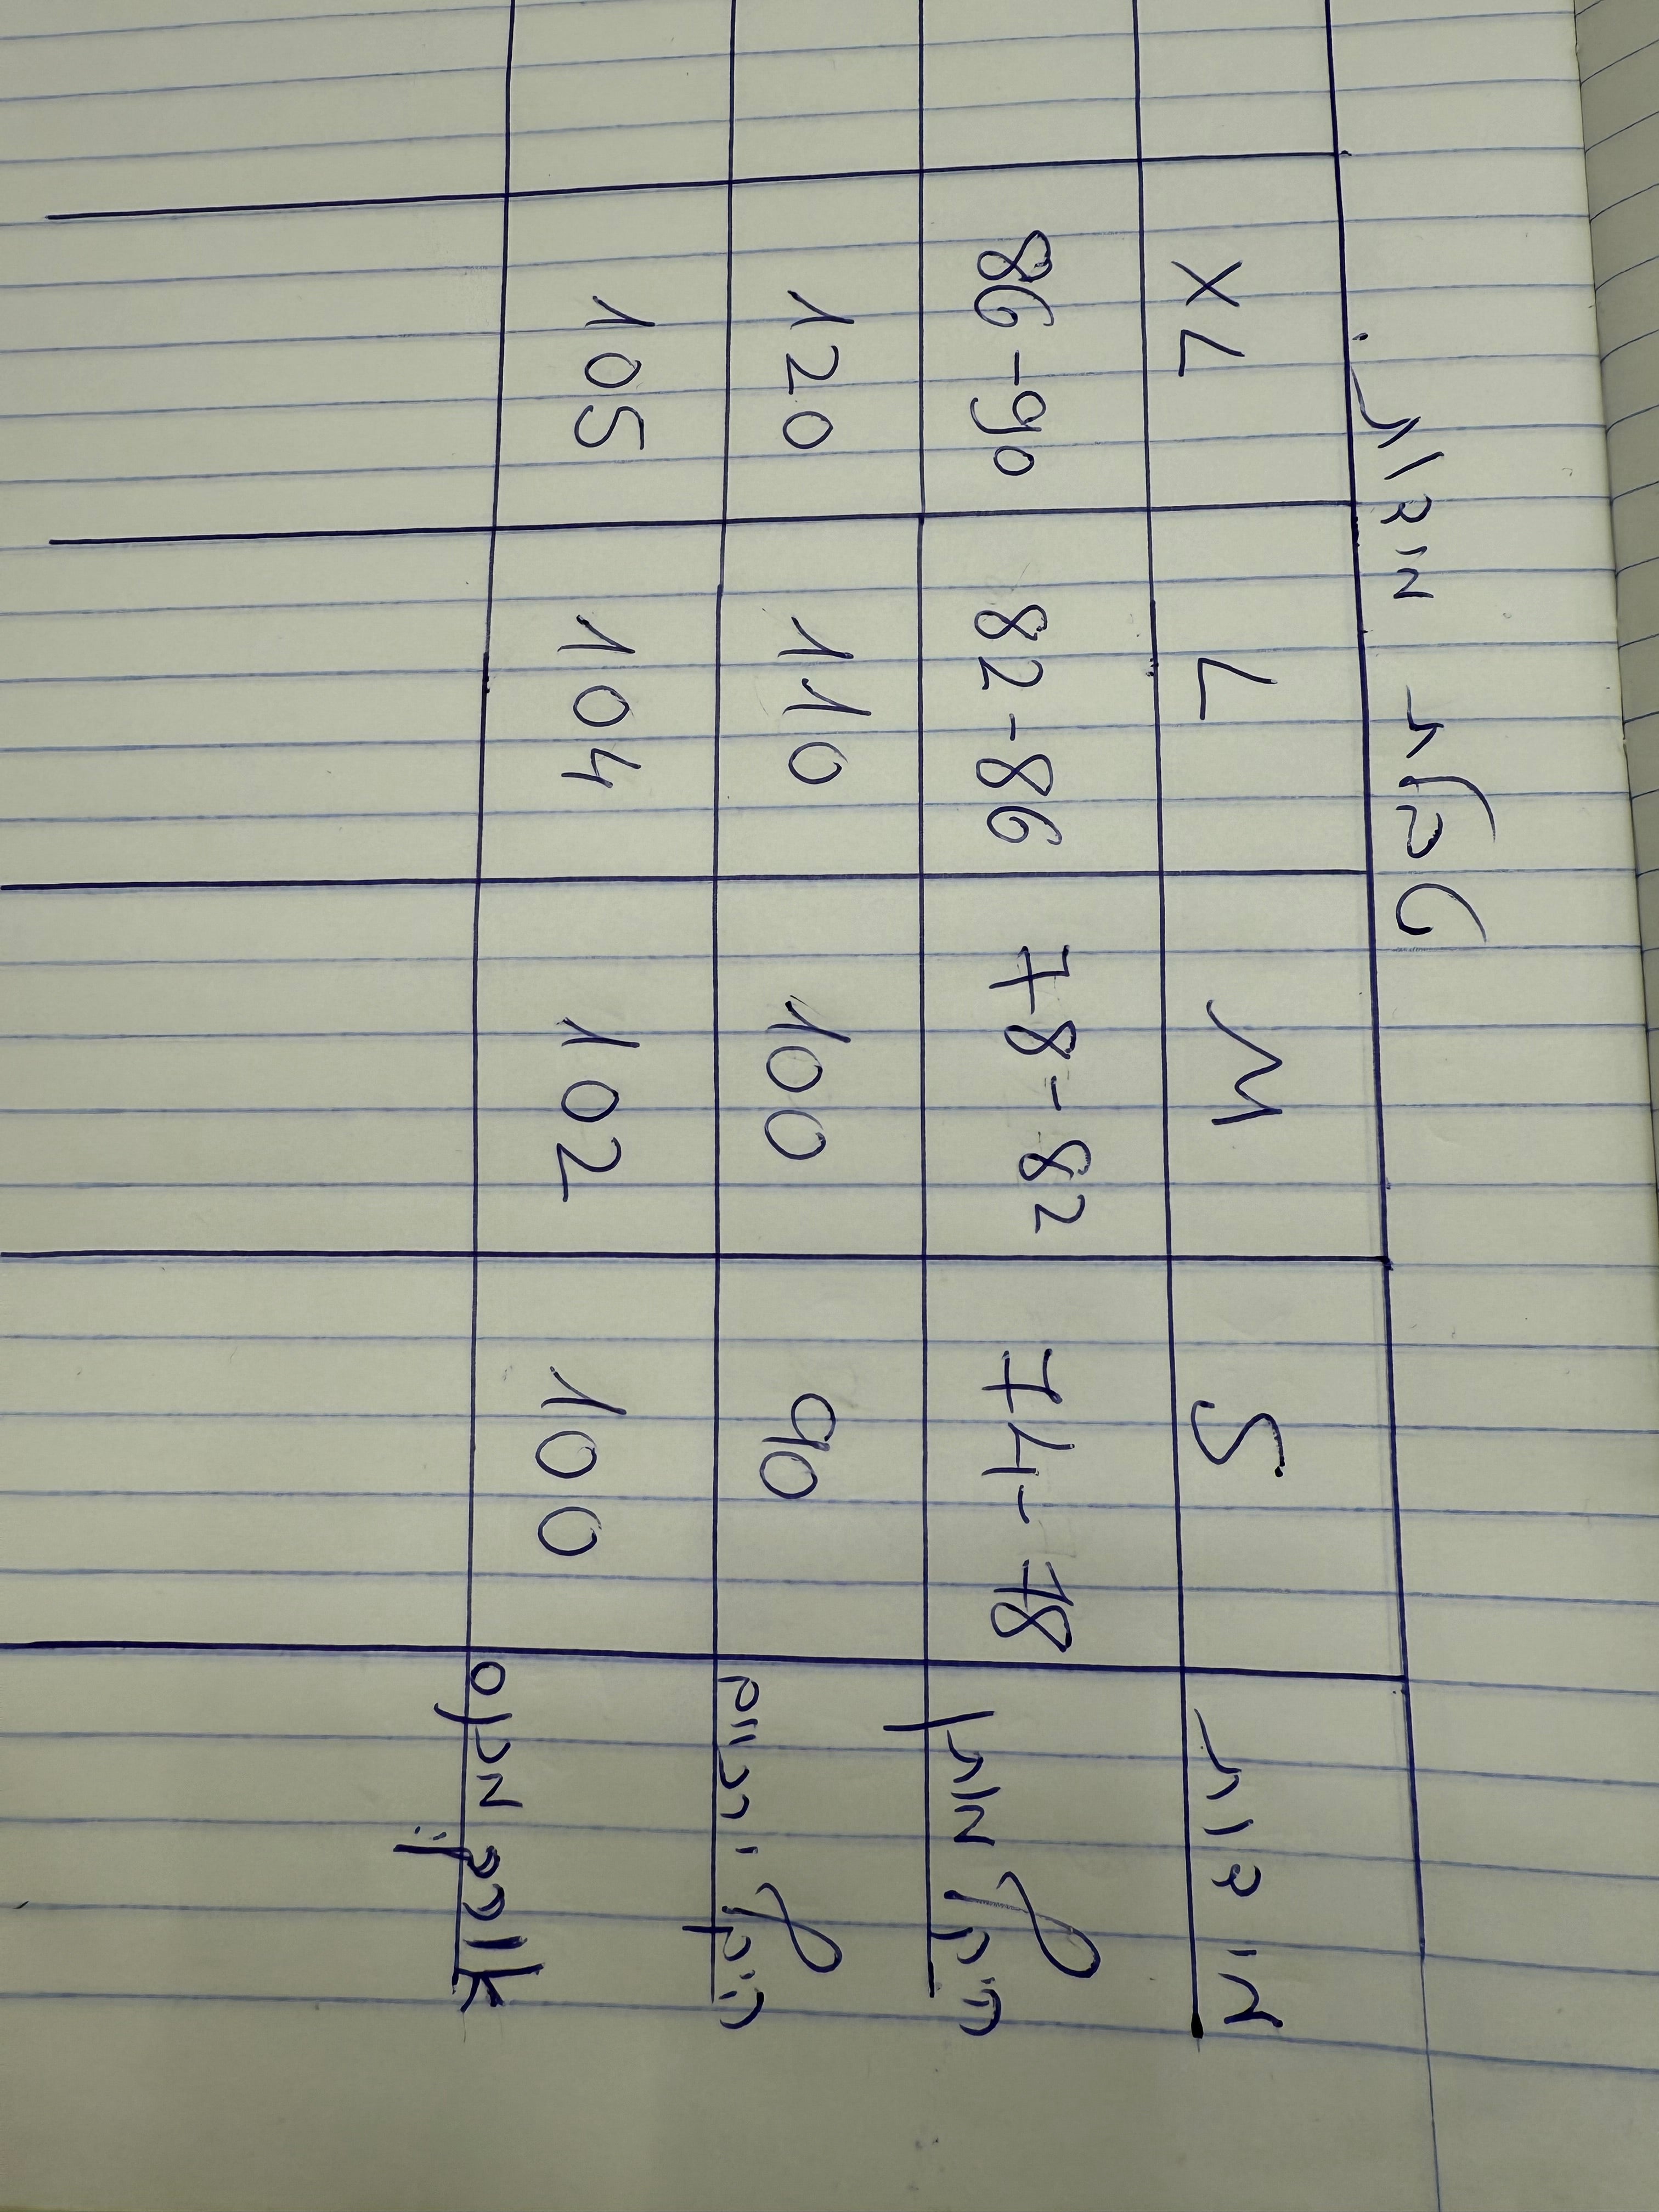 טבלת מידות
מידות S M L XL
היקף מותן 74-78 78-82 82-86 86-90
היקף ירכיים 90 100 110 120
מכנס 100 102 104 105